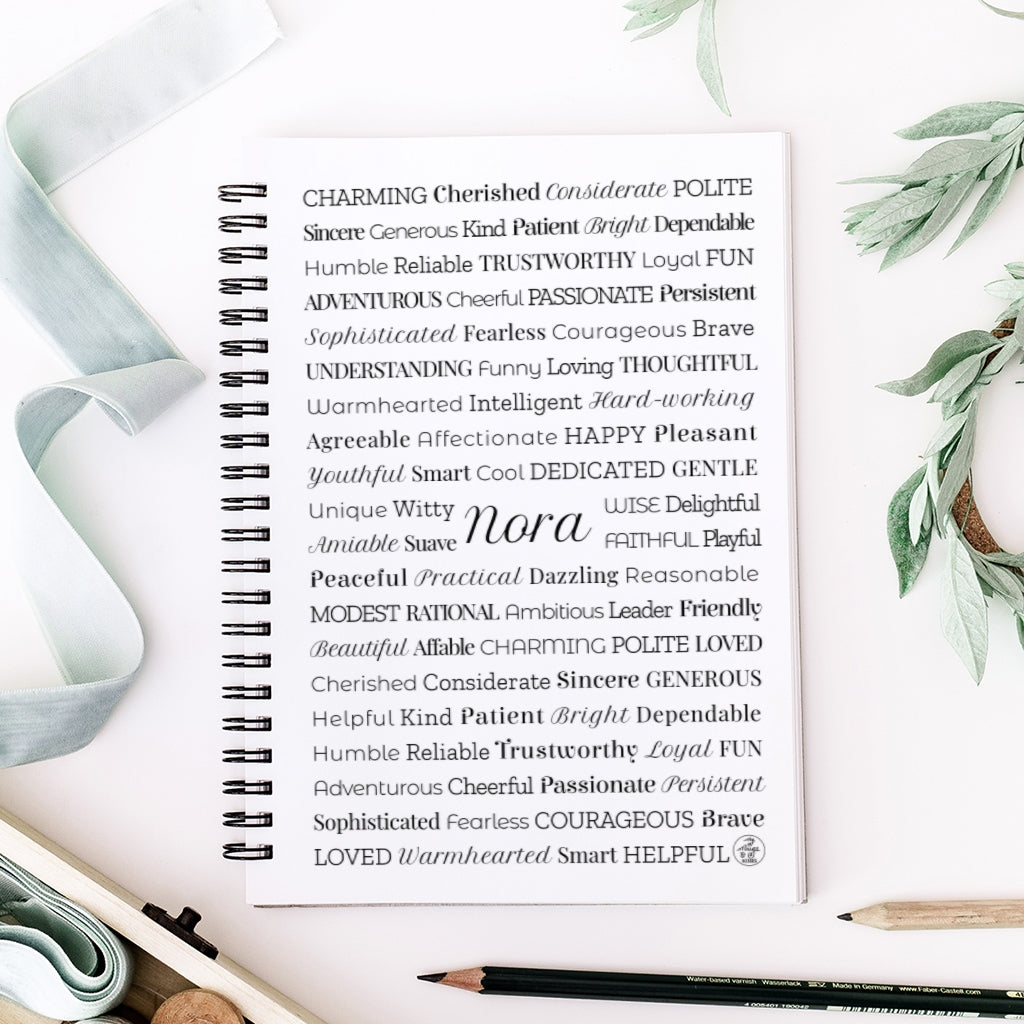 CHARMING Cherished Considerate POLITE
Sincere Generous Kind Patient Bright Dependable
Humble Reliable TRUSTWORTHY Loyal FUN
ADVENTUROUS Cheerful PASSIONATE Persistent
Sophisticated Fearless Courageous Brave
UNDERSTANDING Funny Loving THOUGHTFUL
Warmhearted Intelligent Hard-working
Agreeable Affectionate HAPPY Pleasant
Youthful Smart Cool DEDICATED GENTLE
Unique Witty
Amiable Suave
Nora
WISE Delightful
FAITHFUL Playful
Peaceful Practical Dazzling Reasonable
MODEST RATIONAL Ambitious Leader Friendly
Beautiful Affable CHARMING POLITE LOVED
Cherished Considerate Sincere GENEROUS
Helpful Kind Patient Bright Dependable
Humble Reliable Trustworthy Loyal FUN
Adventurous Cheerful Passionate Persistent
Sophisticated Fearless COURAGEOUS Brave
LOVED Warmhearted Smart HELPFUL
Water-based varnish Wasserlack Made in Germany www.Faber-Castell.com
4 005401 190042